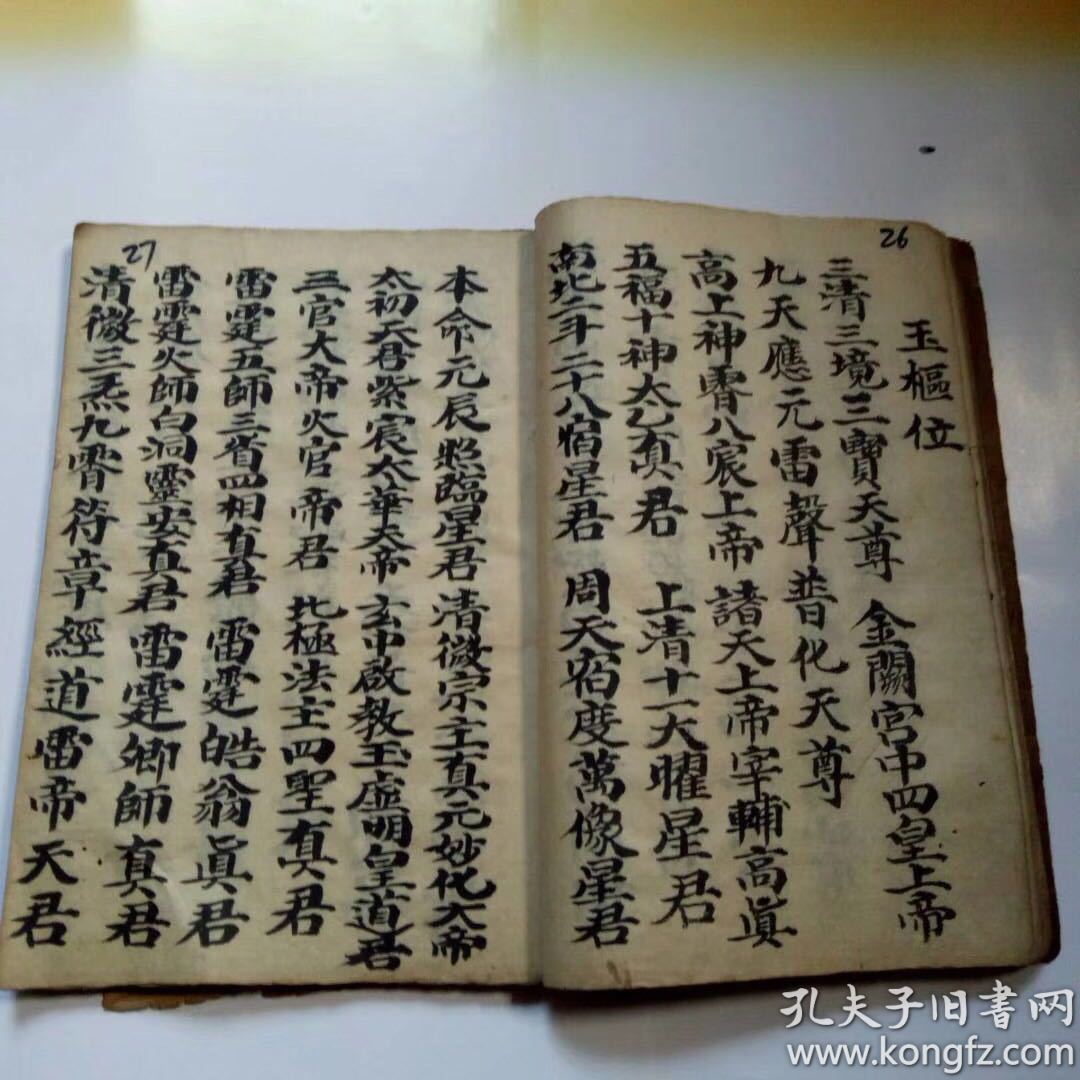 26
玉樞位
三清三境三寶天尊 金闕宮中四皇上帝
九天應元雷聲普化天尊
高上神霄八宸上帝 諸天上帝宰輔高眞
五福十神太乙真君 上清十一大曜星君
南北二斗二十八宿星君 周天宿度萬像星君
27
本命元辰照臨星君 清微宗主真元妙化大帝
太初天君紫宸太華天帝 玄中啟教玉虛明皇道君
三官大帝火官帝君 北極法主四聖真君
雷霆五師三省四相真君 雷霆皓翁眞君
雷霆火師白洞靈安真君 雷霆卿師真君
清微三炁九霄符章經道雷帝天君
孔夫子旧书网
www.kongfz.com